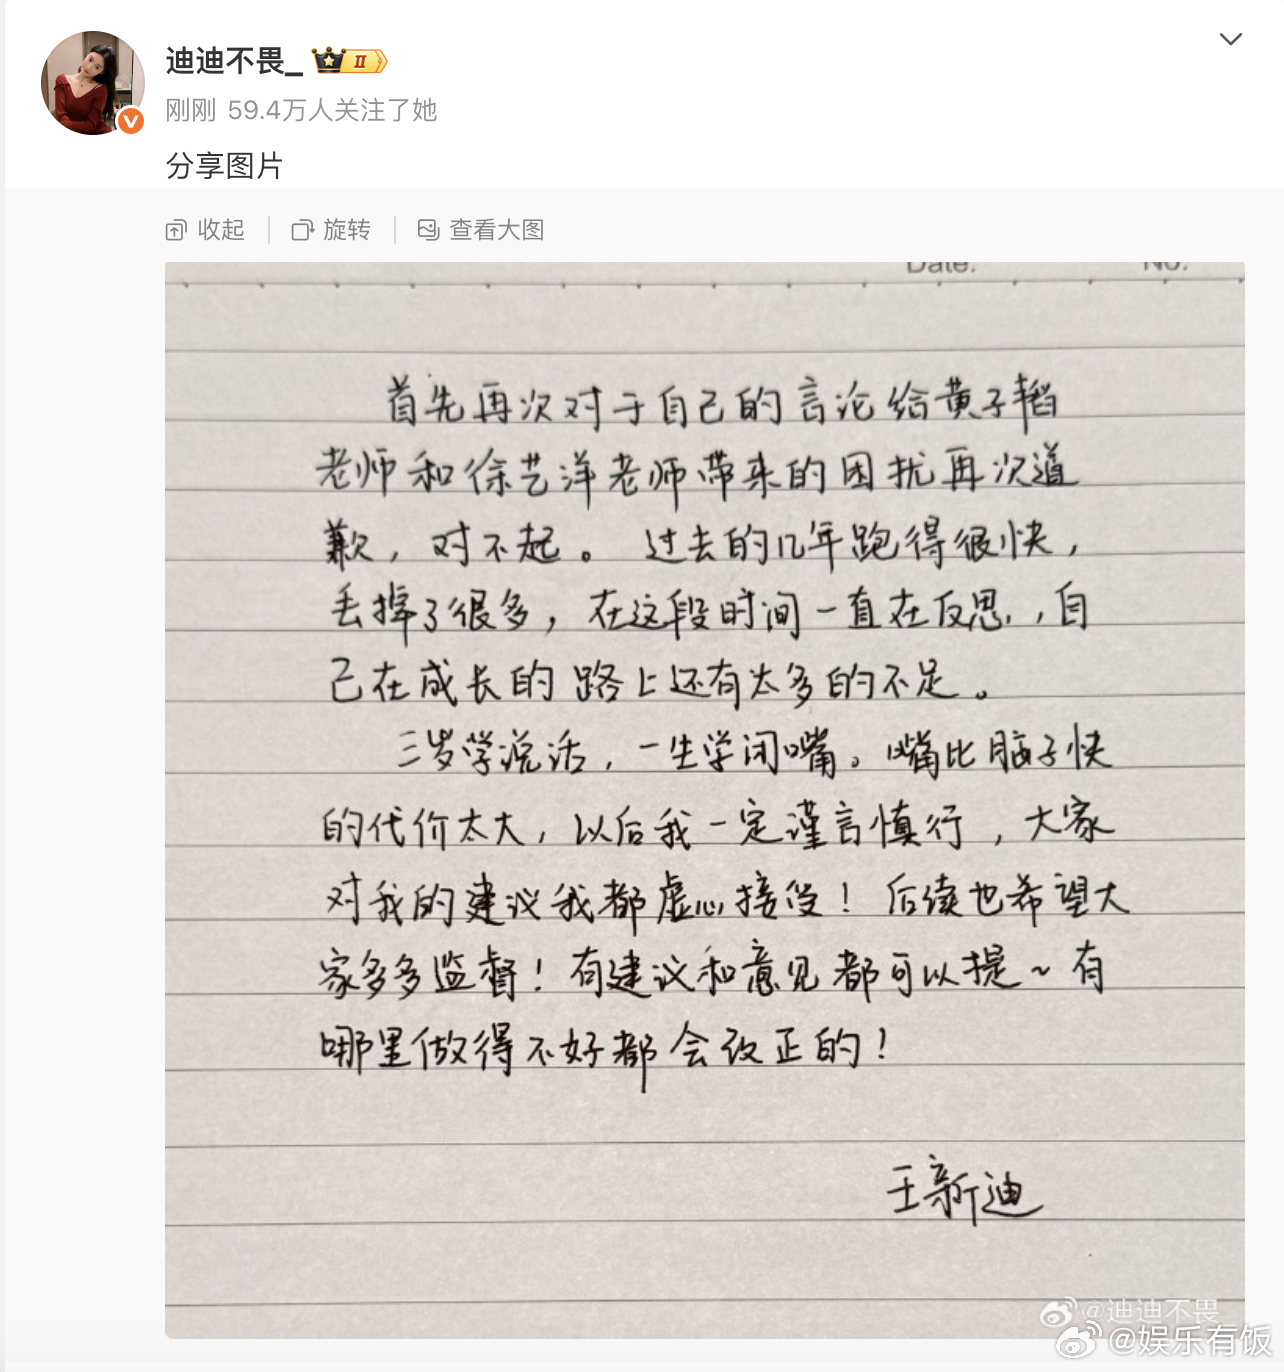 迪迪不畏_ II
刚刚 59.4万人关注了她
分享图片
收起 旋转 查看大图
Date. No.
首先再次对于自己的言论给黄子韬
老师和徐艺洋老师带来的困扰再次道
歉，对不起。过去的几年跑得很快，
丢掉了很多，在这段时间一直在反思，自
己在成长的路上还有太多的不足。
三岁学说话，一生学闭嘴。嘴比脑子快
的代价太大，以后我一定谨言慎行，大家
对我的建议我都虚心接受！后续也希望大
家多多监督！有建议和意见都可以提～有
哪里做得不好都会改正的！
王新迪
@迪迪不畏_
@娱乐有饭